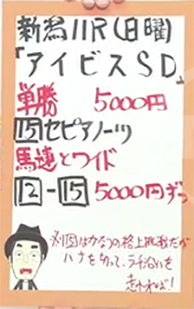 新潟11R(日曜)
「アイビスSD」
単勝 5000円
15セピアノーツ
馬連とワイド
12-15 5000円ずつ
15はかなりの格上挑戦だが
ハナを切って、ラチ沿いを
走れれば!